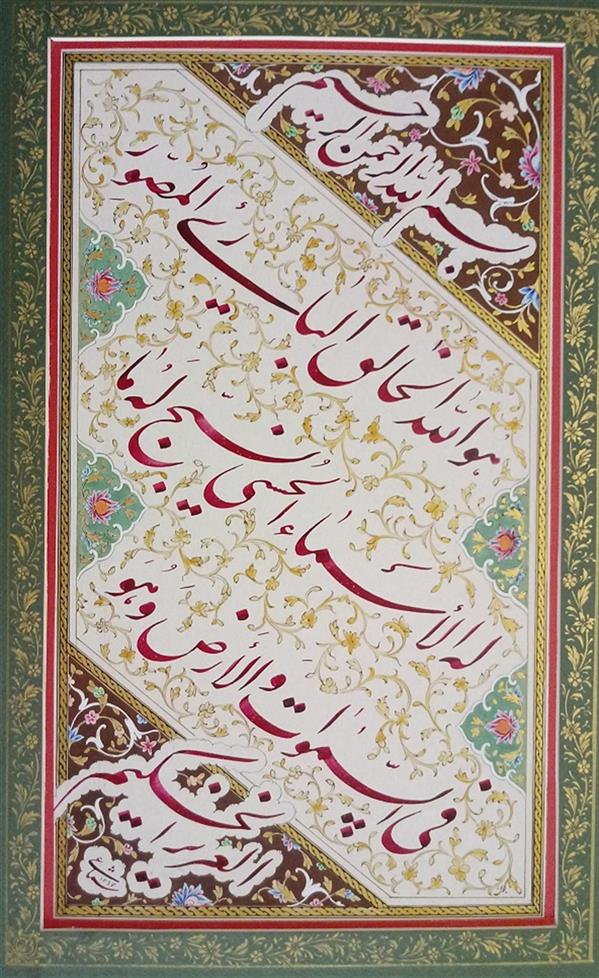 بسم الله الرحمن الرحیم
هو الله الخالق البارئ المصور
له الأسماء الحسنى يسبح له ما
في السموات والأرض وهو
العزيز الحكيم